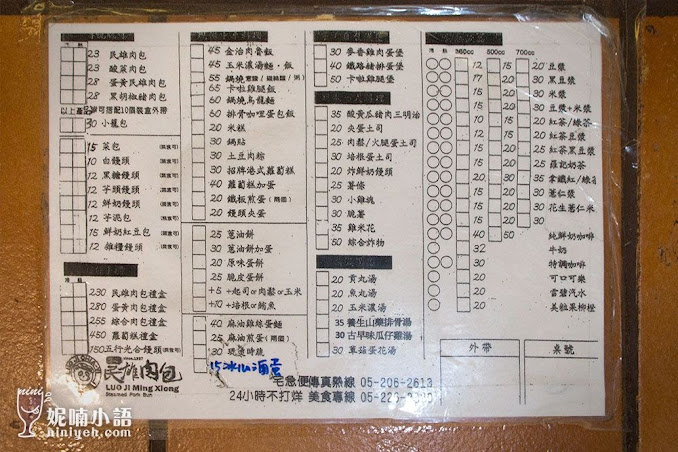 23 民雄肉包
23 酸菜肉包
28 蛋黃民雄肉包
28 黑胡椒豬肉包
30 小籠包
15 菜包
10 白饅頭
12 黑糖饅頭
12 芋頭饅頭
12 鮮奶饅頭
12 芋泥包
15 鮮奶紅豆包
12 雜糧饅頭
230 民雄肉包禮盒
280 蛋黃肉包禮盒
255 綜合肉包禮盒
450 蘿蔔糕禮盒
150 五行光合饅頭
民雄肉包
LUO JI Ming Xiong
Steamed Pork Bun
45 金冶肉魯飯
45 玉米濃湯麵、飯
55 鍋燒
65 卡啦雞腿飯
60 鍋燒烏龍麵
50 排骨咖哩蛋包飯
20 米糕
30 鍋貼
30 土豆肉粽
30 招牌港式蘿蔔糕
40 蘿蔔糕加蛋
20 鐵板煎蛋(兩個)
20 饅頭夾蛋
25 蔥油餅
30 蔥油餅加蛋
20 原味蛋餅
25 脆皮蛋餅
+5 +起司or肉鬆or玉米
+10 +培根or鮪魚
40 麻油雞絲蛋麵
25 麻油煎蛋(兩個)
15 冰心滷蛋
30 麥香雞肉蛋堡
40 鐵路豬排蛋堡
50 卡啦雞腿堡
35 酸黃瓜豬肉三明治
20 夾蛋土司
25 肉鬆/火腿蛋土司
30 培根蛋土司
20 炸鮮奶饅頭
25 薯條
30 小雞塊
30 脆薯
35 雞米花
50 綜合炸物
20 貢丸湯
20 魚丸湯
20 玉米濃湯
35 養生山藥排骨湯
30 古早味瓜仔雞湯
30 蕈菇蛋花湯
360cc 500cc 700cc
12 15 20 豆漿
17 20 黑豆漿
15 30 米漿
豆漿+米漿
紅茶/綠茶
紅茶豆漿
紅茶黑豆漿
羅記奶茶
拿鐵紅/綠
薏仁漿
花生薏仁米
40 50 純鮮奶咖啡
32 牛奶
30 特調咖啡
20 可口可樂
20 雪碧汽水
20 美粒果柳橙
外帶 桌號
宅急便傳真熱線 05-206-2613
24小時不打烊 美食專線
nini
妮喃小語
niniyeh.com